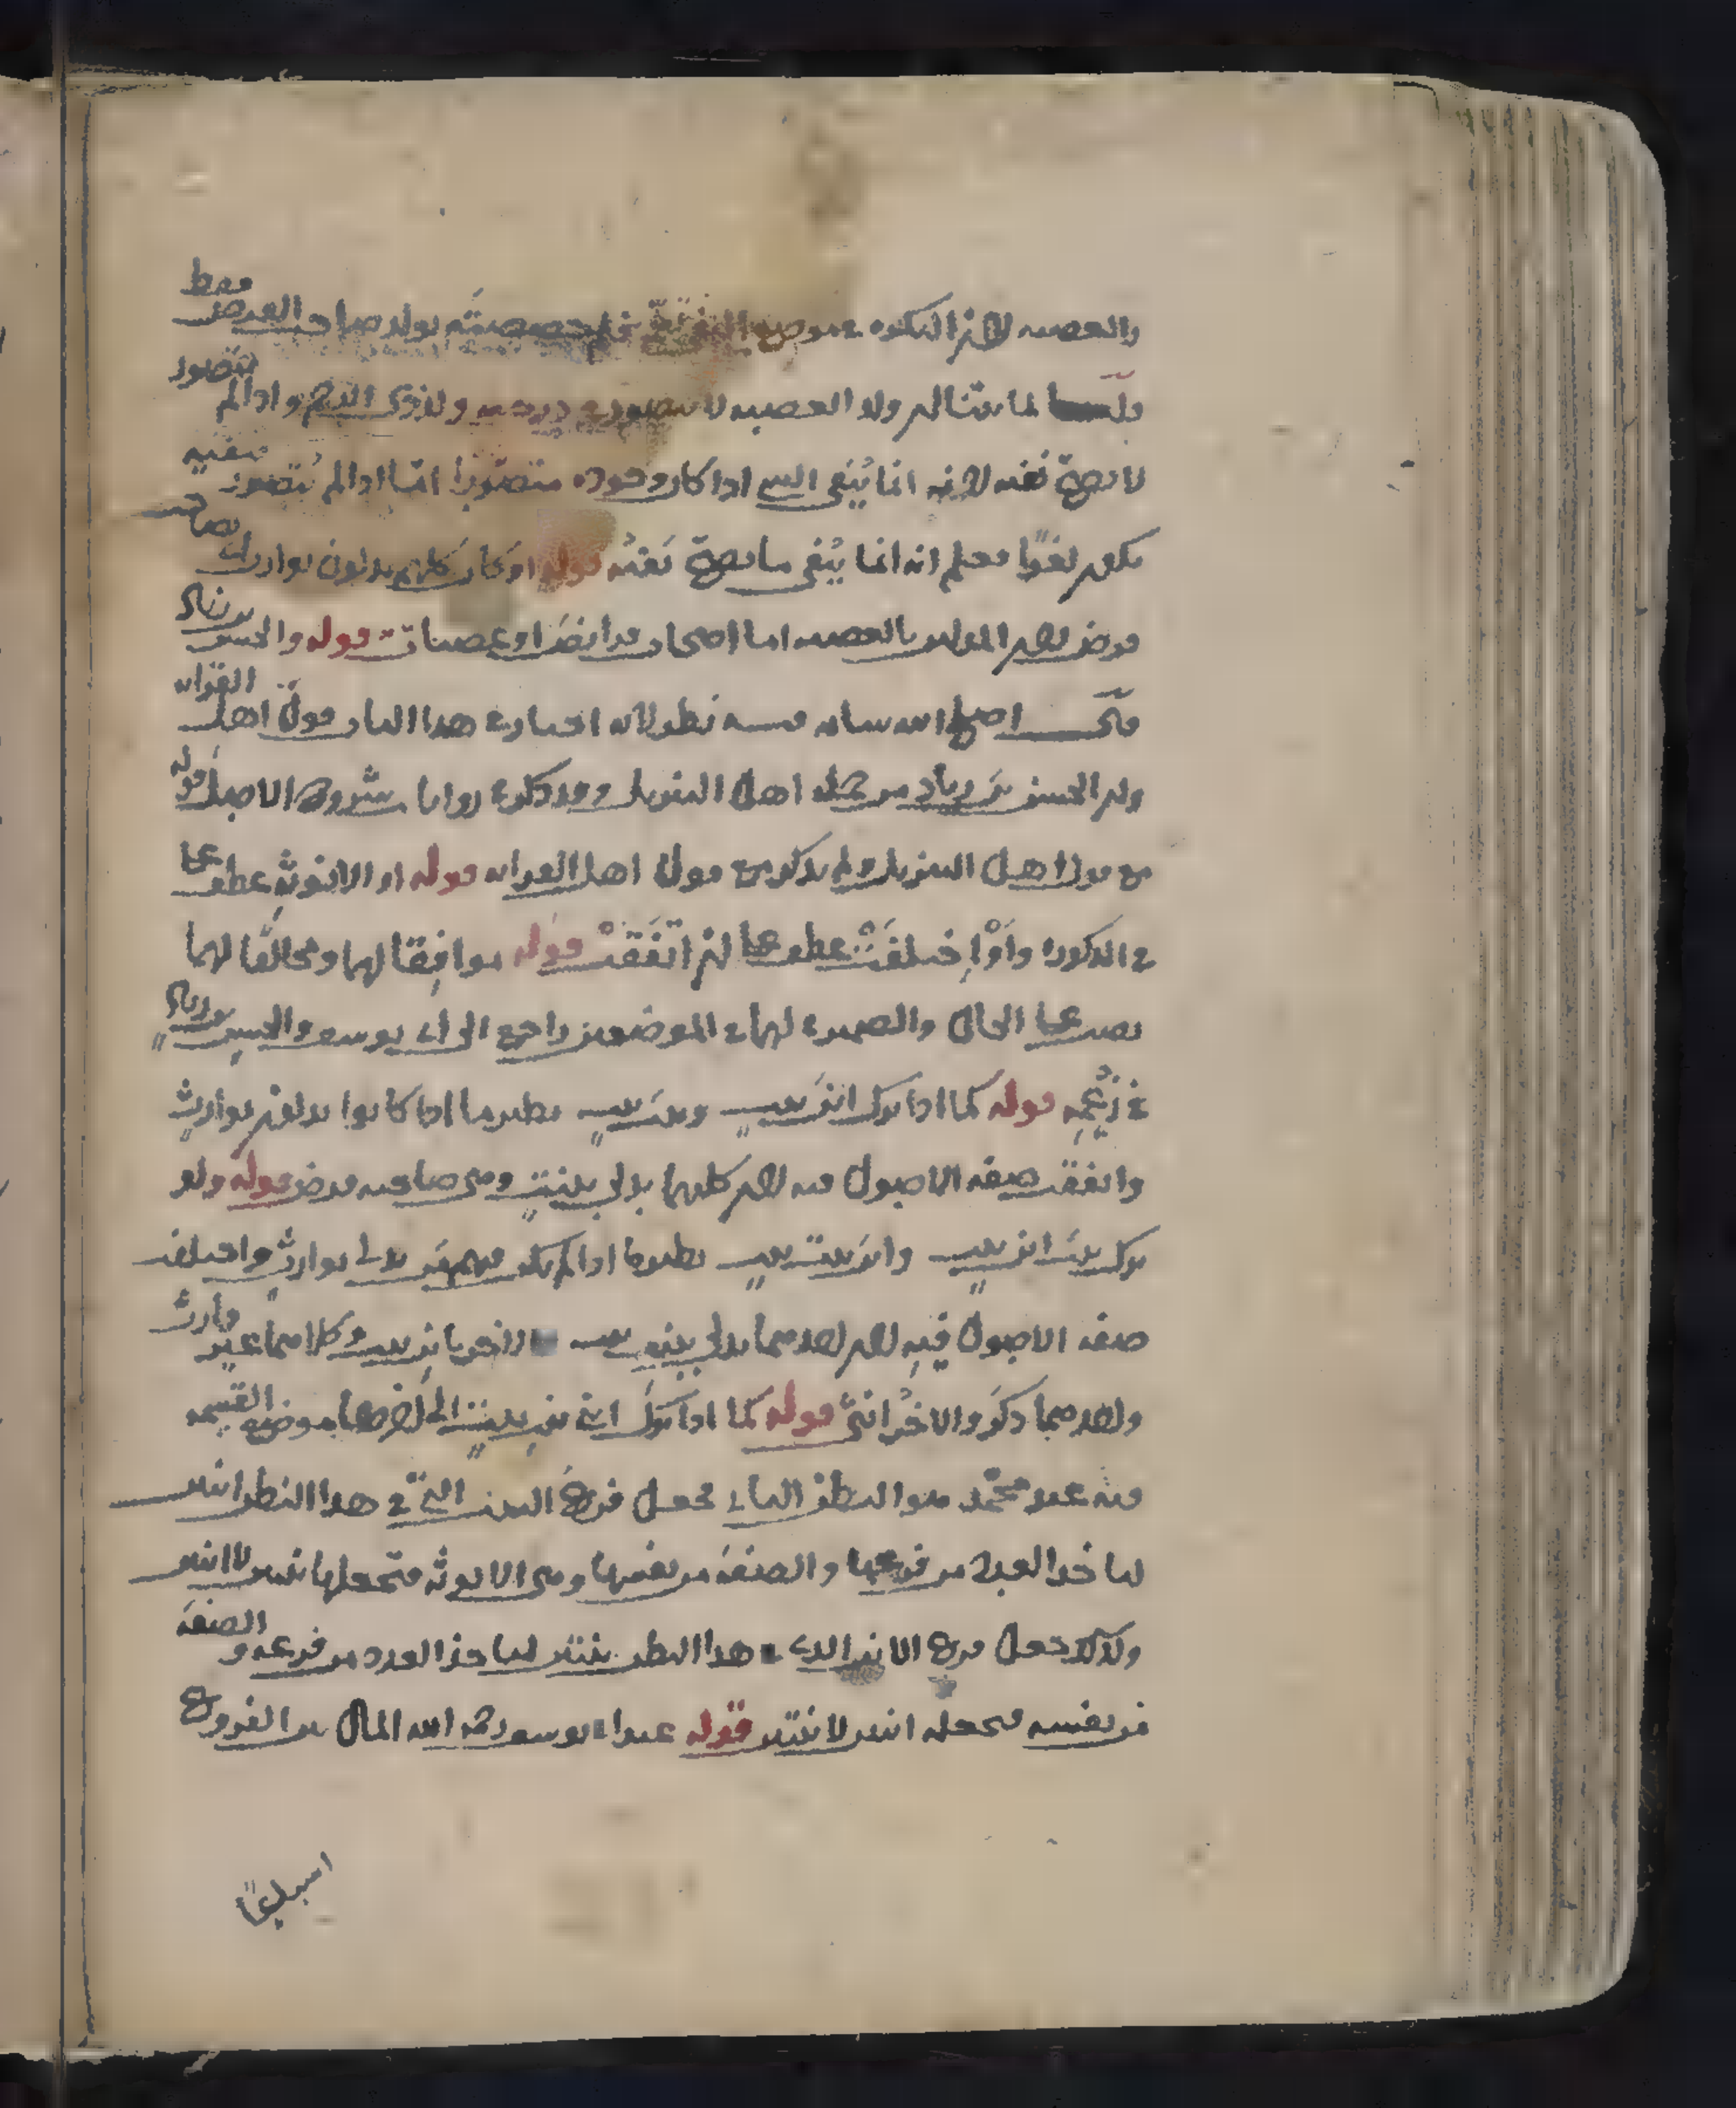 والعصبة لان النكرة في موضع النفي تعم فلم خصصته بولد صاحب الفرض فقط
قلت لما يتنا ان ولد العصبة لا يتصور في درجته ولد ذوى الرحم واذا لم يتصور
لا يصح نفيه لانه انما يُنفى الشي اذا كان وجوده متصورا امّا اذا لم يُتصور فنفيه
يكون لغوًا فعلم انه انما يُنفى ما يصح نفيُه قوله او كان كلهم يدلون بوارث بصاحب
فرض لان المدلين بالعصبة اما اصحاب فرايض او عصبات قوله والحسن بن زياد
قلت اصلح الله شانه فيه نظر لانه اختار في هذا الباب قولَ اهل القرابه
ولان الحسن بن زياد من جمله اهل التنزيل وقد ذكر في روايا شروح الاصل قوله
مع قول اهل التنزيل ولم يذكر مع قول اهل القرابه قوله او الانوثة عطف على
في الذكورة وأوْ اختلفَتْ عطف على ان اتّفَقَتْ قوله موافِقا لهما ومخالفًا لهما
نصب على الحال والضمير في لهما في الموضعين راجع الى ابى يوسف والحسن بن زياد
في زُعْمِه قوله كما اذا ترك ابن بنتٍ وبنتَ بنتٍ نظير ما اذا كانوا يدلون بوارثٍ
واتفقت صفة الاصول فيه لان كليهما يدلى ببنتٍ وهى صاحبه فرض قوله ولو
ترك بنتَ ابن بنتٍ وابنَ بنت بنتٍ نظير ما اذا لم يكن فيهم من يدلى بوارثٍ واختلف
صفة الاصول فيهِ لان احدهما يدلى ببنت بنت والاخر بابن بنت وكلاهما غير وارث
واحدهما ذكَر والاخرُ انثىٰ قوله كما اذا تركَ ابنى بنتِ بنتٍ الى اخرها موضع القسمه
فيه عند محمّد هو البطن الثانى فجعل فرعُ البنت التى في هذا البطن اثنين
لياخذ العدد من فرعها والصفةَ من نفسها وهى الانوثه فتجعلها بنتين لا ابنين
وكذلك جعل فرع الابن الذى في هذا البطن بنتين لياخذ العدد من فرعه و الصفة
من نفسه فيجعله ابنين لا بنتين قوله عند ابى يوسف رحمه الله المال بين الفروع
اسباعًا